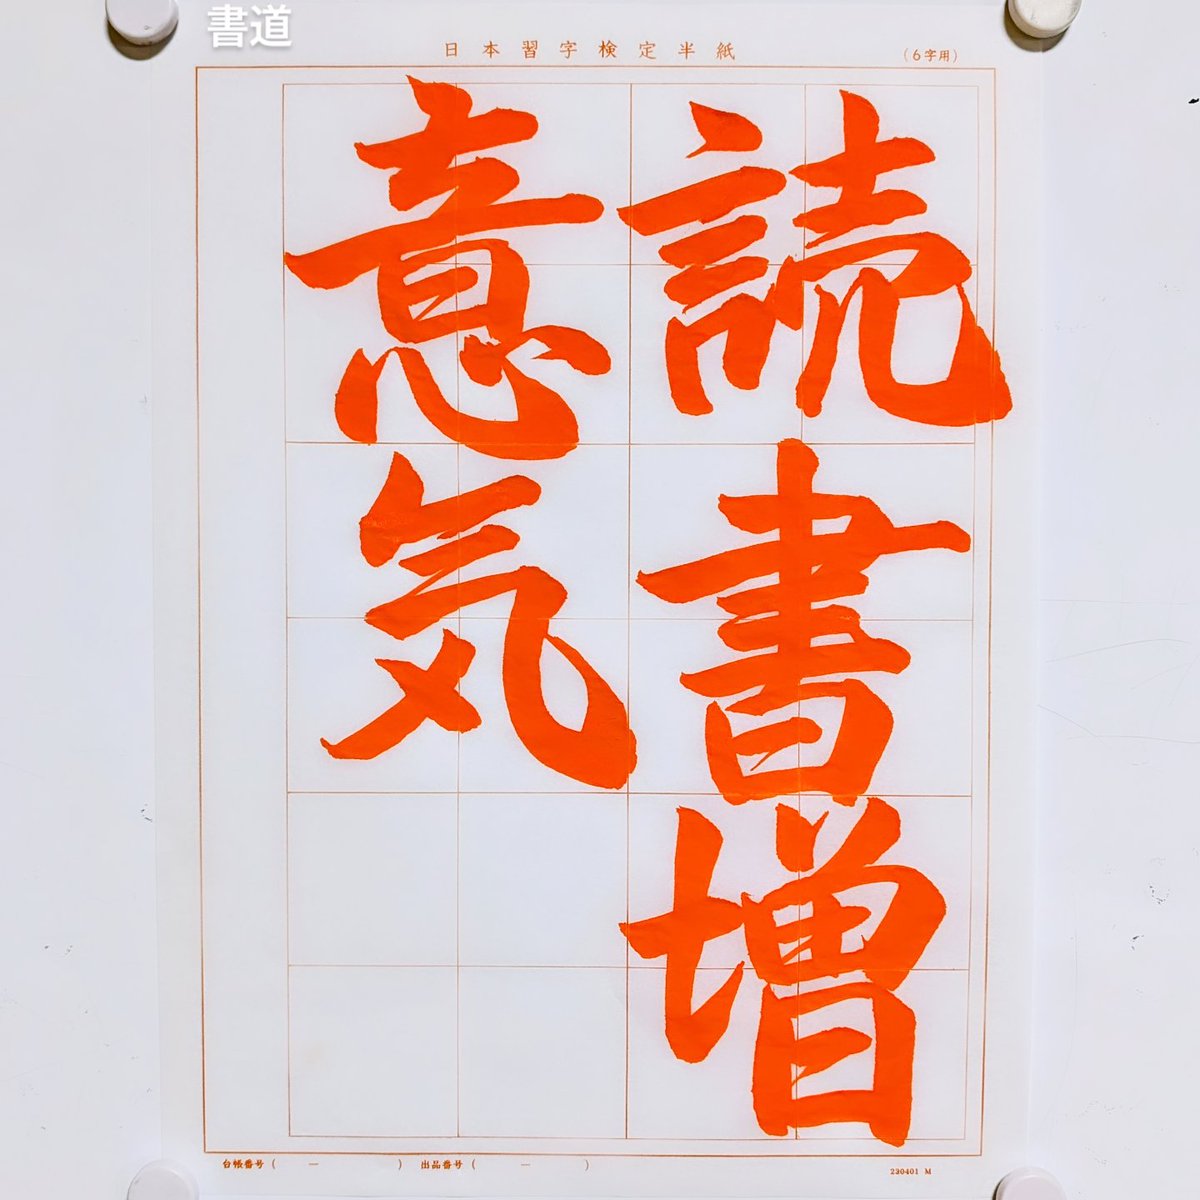 書道
日本習字検定半紙
(6字用)
読書増
意気
台帳番号( ー )
出品番号( ー )
230401 M